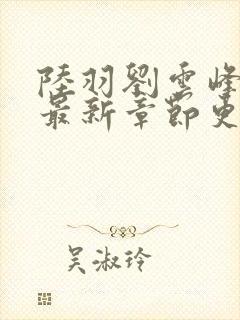 陸羽劉雲峰
最新章節更
吴淑玲